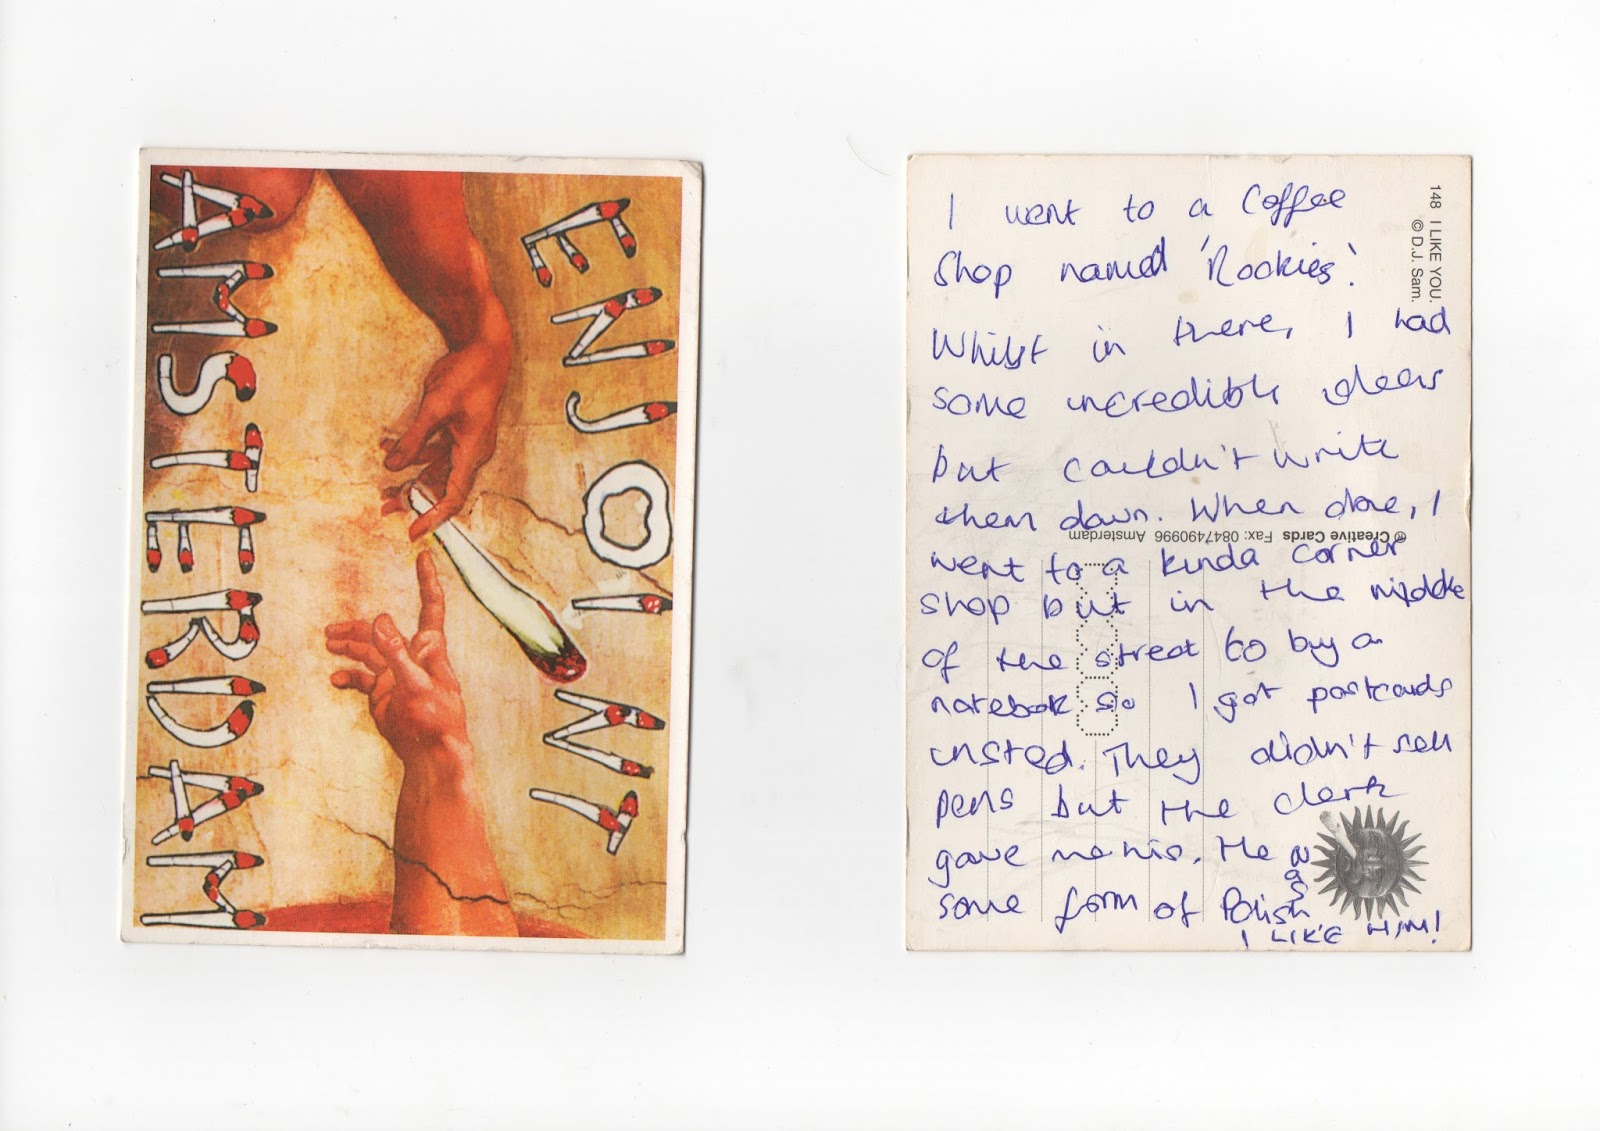 ENJOINT
AMSTERDAM
148 I LIKE YOU.
© D.J. Sam.
I went to a Coffee
Shop named 'Rookies'.
Whilst in there, I had
some incredible ideas
but couldn't write
them down. When done, I
© Creative Cards Fax: 0847490996 Amsterdam
went to a kinda corner
shop but in the middle
of the street to buy a
notebook so I got postcards
insted. They didn't sell
pens but the clerk
gave me his. He was
some form of Polish
I LIKE HIM!